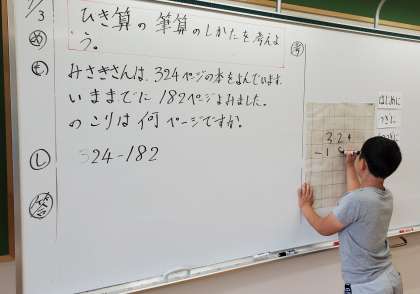 7/3
め ひき算の筆算のしかたを考えよ
う。
も みさきさんは、324ページの本をよんでいます。
いままでに182ページよみました。
のこりは何ページですか。
し 324-182
答
考
はじめに
つぎに
324
-1